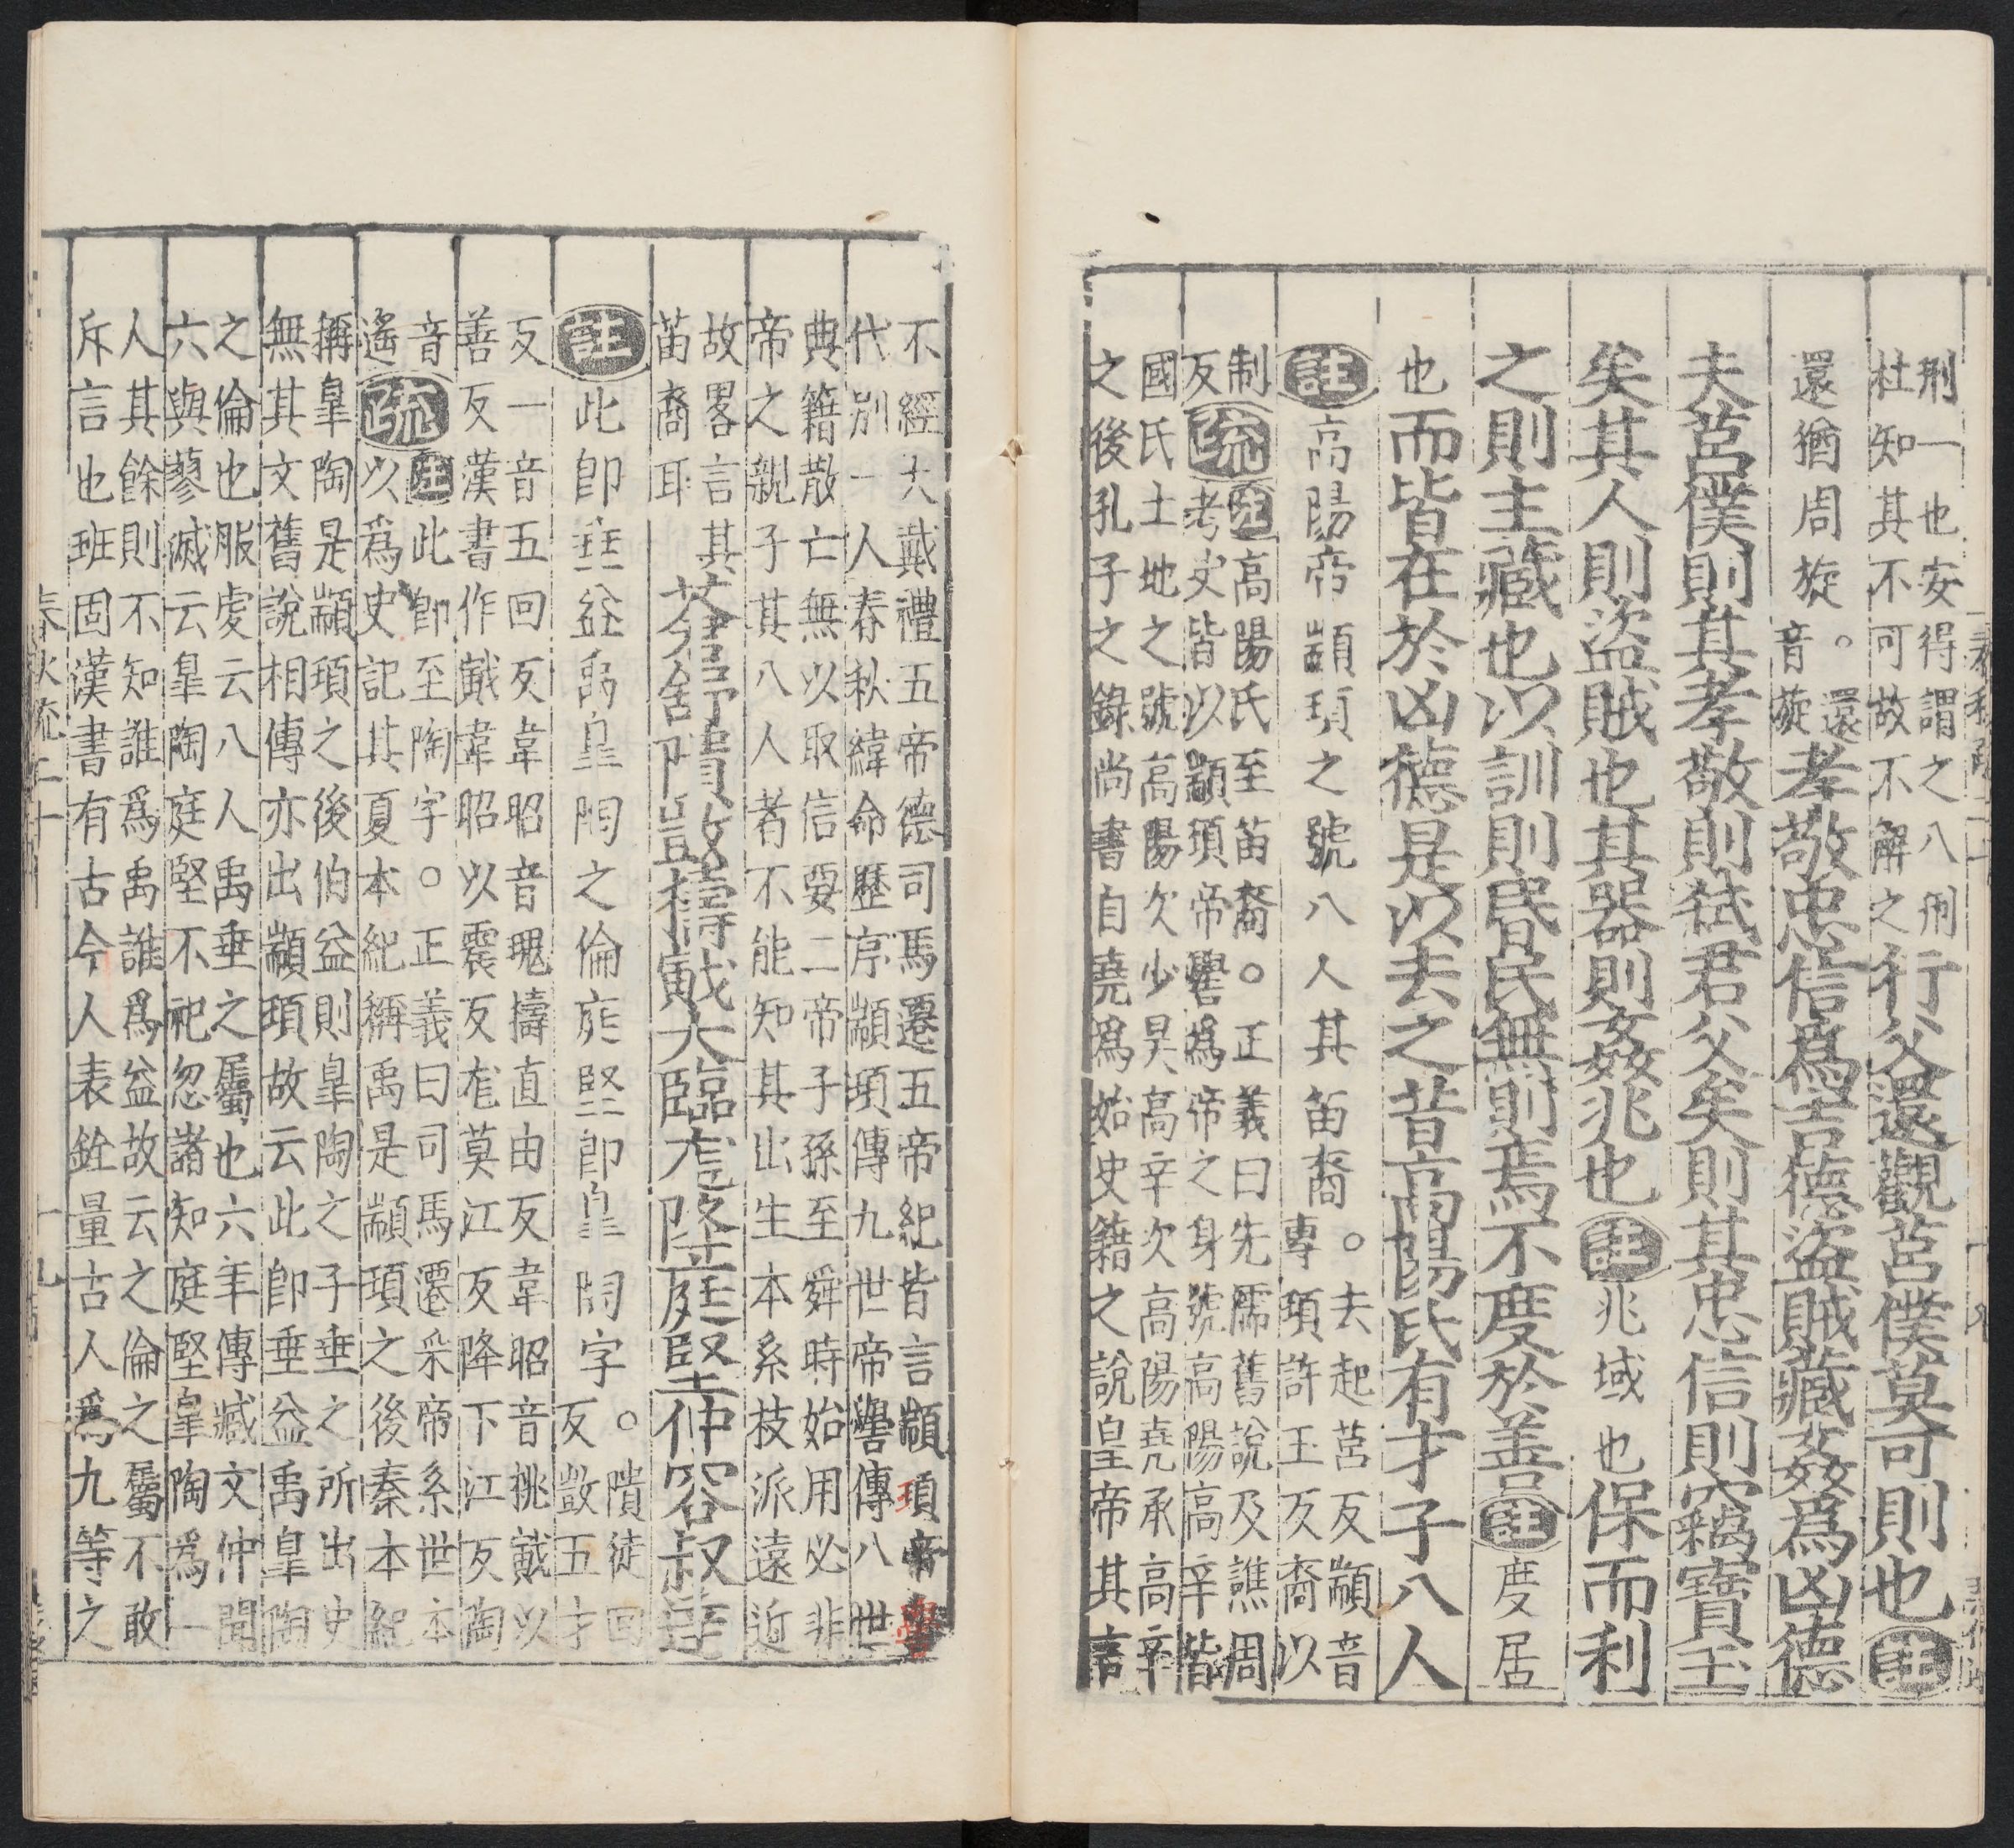 刑一也安得謂之八刑
杜知其不可故不解之
行父還觀莒僕莫可則也註
還猶周旋。還
音旋
孝敬忠信為吉德盜賊藏姦為凶德
夫莒僕則其孝敬則弑君父矣則其忠信則竊寶玉
矣其人則盜賊也其器則姦兆也註兆域也保而利
之則主藏也以訓則昬民無則焉不度於善註度居
也而皆在於凶德是以去之昔高陽氏有才子八人
註高陽帝顓頊之號八人其苗裔。去起莒反顓音
專頊許玉反裔以
制
反疏註高陽氏至苗裔。正義曰先儒舊說及譙周
考史皆以顓頊帝嚳為帝之身號高陽高辛皆
國氏土地之號高陽次少昊高辛次高陽堯承高辛
之後孔子之錄尚書自堯為始史籍之說皇帝其言
不經大戴禮五帝德司馬遷五帝紀皆言顓頊帝嚳
代別一人春秋緯命歷序顓頊傳九世帝嚳傳八世
典籍散亡無以取信要二帝子孫至舜時始用必非
帝之親子其八人者不能知其出生本系枝派遠近
故畧言其
苗裔耳
蒼舒隤敳檮戭大臨尨降庭堅仲容叔達
註此即垂益禹皐陶之倫庭堅即皐陶字。隤徒回
反敳五才
反一音五回反韋昭音瑰檮直由反韋昭音桃戭以
善反漢書作戭韋昭以震反尨莫江反降下江反陶
音
遙疏註此即至陶字。正義曰司馬遷采帝系世本
以爲史記其夏本紀稱禹是顓頊之後秦本紀
稱皐陶是顓頊之後伯益則皐陶之子垂之所出史
無其文舊說相傳亦出顓頊故云此即垂益禹皐陶
之倫也服虔云八人禹垂之屬也六年傳臧文仲聞
六與蓼滅云皐陶庭堅不祀忽諸知庭堅皐陶為一
人其餘則不知誰爲禹誰爲益故云之倫之屬不敢
斥言也班固漢書有古今人表銓量古人爲九等之
春秋疏二十
十九